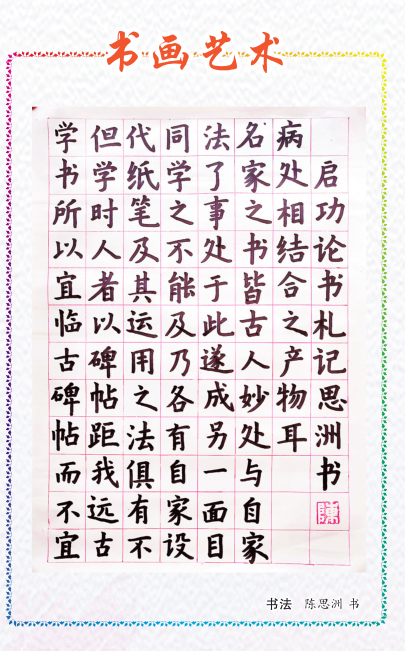 书画艺术
学书所以宜临古碑帖而不宜
但学时人者以碑帖距我远古
代纸笔及其运用之法俱有不
同学之不能及乃各有自家设
法了事处于此遂成另一面目
名家之书皆古人妙处与自家
病处相结合之产物耳
启功论书札记思洲书
陳
书法 陈思洲 书